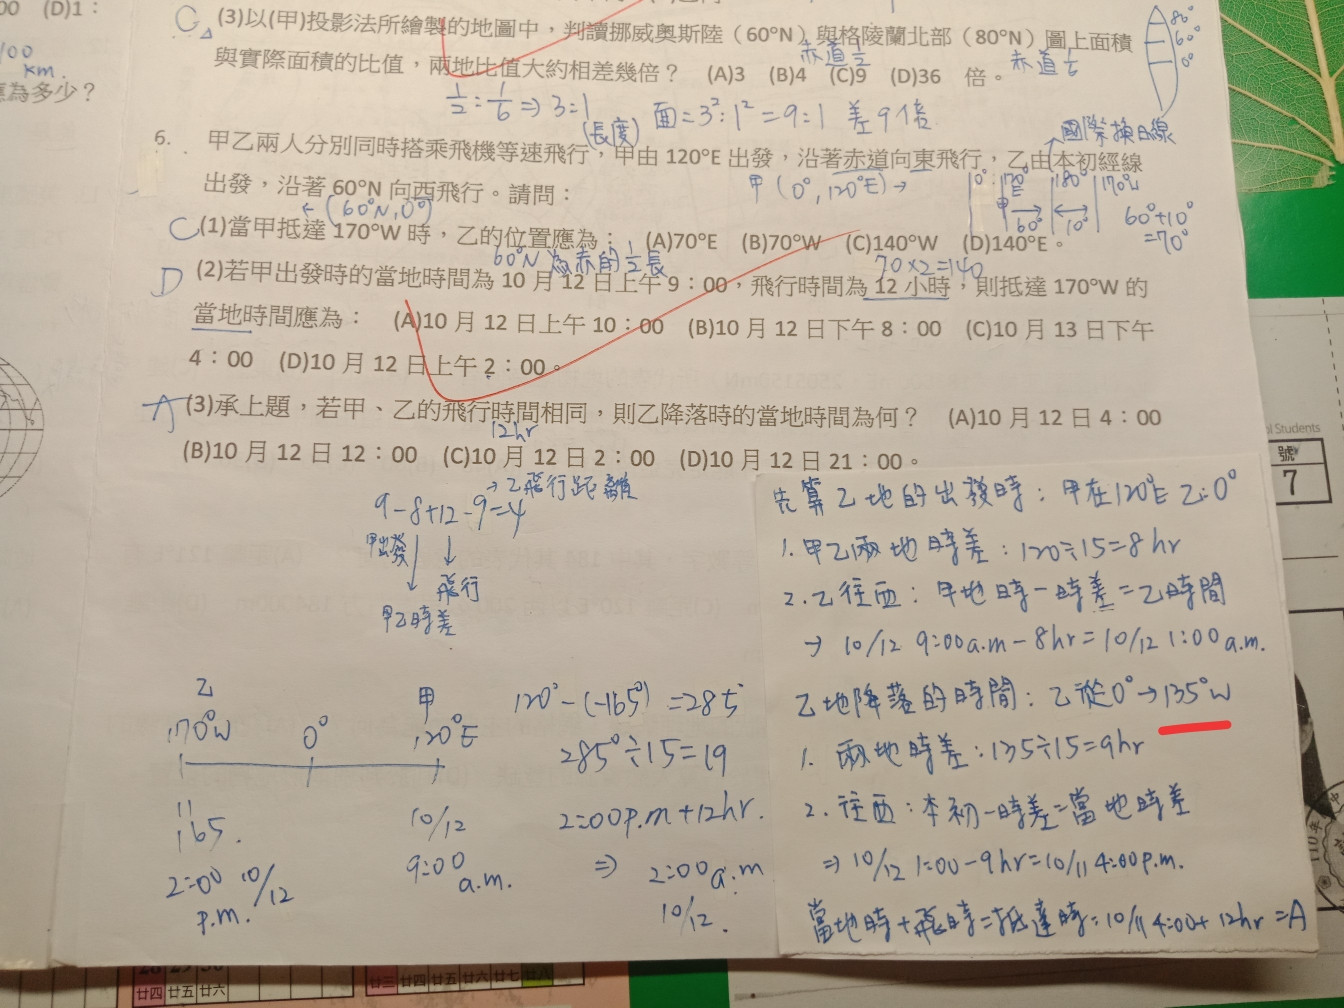 00 (D)1：
100
km.
應為多少？
C (3)以(甲)投影法所繪製的地圖中，判讀挪威奧斯陸（60°N）與格陵蘭北部（80°N）圖上面積
與實際面積的比值，兩地比值大約相差幾倍？ (A)3 (B)4 (C)9 (D)36 倍。
赤道1/2
赤道1/6
80°
60°
0°
1/2：1/6⇒3：1
(長度)
面=3²：1²=9：1 差9倍
國際換日線
6. 甲乙兩人分別同時搭乘飛機等速飛行，甲由 120°E 出發，沿著赤道向東飛行，乙由本初經線
出發，沿著 60°N 向西飛行。請問：
甲(0°,120°E)→
←(60°N,0°)
0° 120°E 180° 170°W
甲
60° 10°
60°+10°
=70°
C (1)當甲抵達 170°W 時，乙的位置應為： (A)70°E (B)70°W (C)140°W (D)140°E。
60°N為赤的1/2長
70×2=140
D (2)若甲出發時的當地時間為 10 月 12 日上午 9：00，飛行時間為 12 小時，則抵達 170°W 的
當地時間應為： (A)10 月 12 日上午 10：00 (B)10 月 12 日下午 8：00 (C)10 月 13 日下午
4：00 (D)10 月 12 日上午 2：00。
A (3)承上題，若甲、乙的飛行時間相同，則乙降落時的當地時間為何？ (A)10 月 12 日 4：00
12hr
(B)10 月 12 日 12：00 (C)10 月 12 日 2：00 (D)10 月 12 日 21：00。
→乙飛行距離
9-8+12-9=4
甲出發
飛行
甲乙時差
乙 甲
170°W 0° 120°E
165.
2:00 10/12
p.m.
10/12
9:00
a.m.
120°-(-165°)=285°
285°÷15=19
2:00p.m+12hr.
⇒ 2:00a.m
10/12.
先算乙地的出發時：甲在120°E 乙:0°
1.甲乙兩地時差：120÷15=8hr
2.乙往西：甲地時-時差=乙時間
→ 10/12 9:00a.m-8hr=10/12 1:00a.m.
乙地降落的時間：乙從0°→135°W
1. 兩地時差:135÷15=9hr
2. 往西：本初-時差=當地時差
⇒10/12 1:00-9hr=10/11 4:00p.m.
當地時+飛時=抵達時=10/11 4:00+12hr=A
l Students
號
7
28 29 30
廿四 廿五 廿六
廿三 廿四 廿五 廿六 廿七 廿八